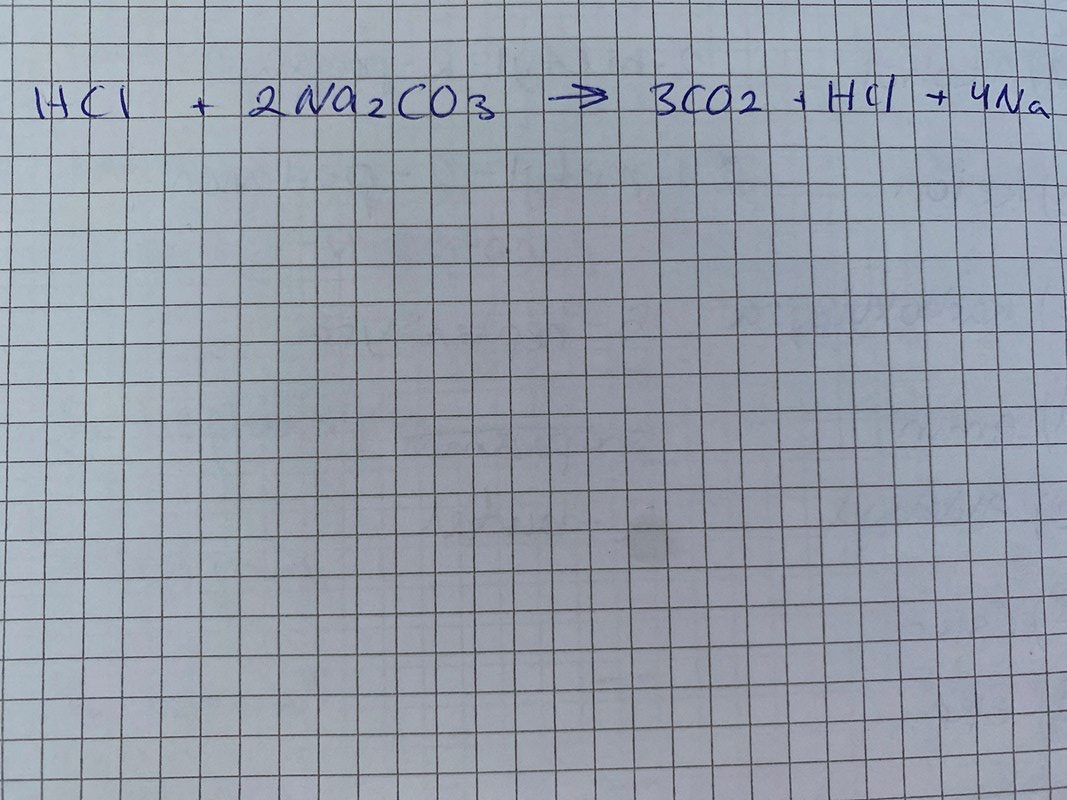 HCl + 2Na2CO3 → 3CO2 + HCl + 4Na